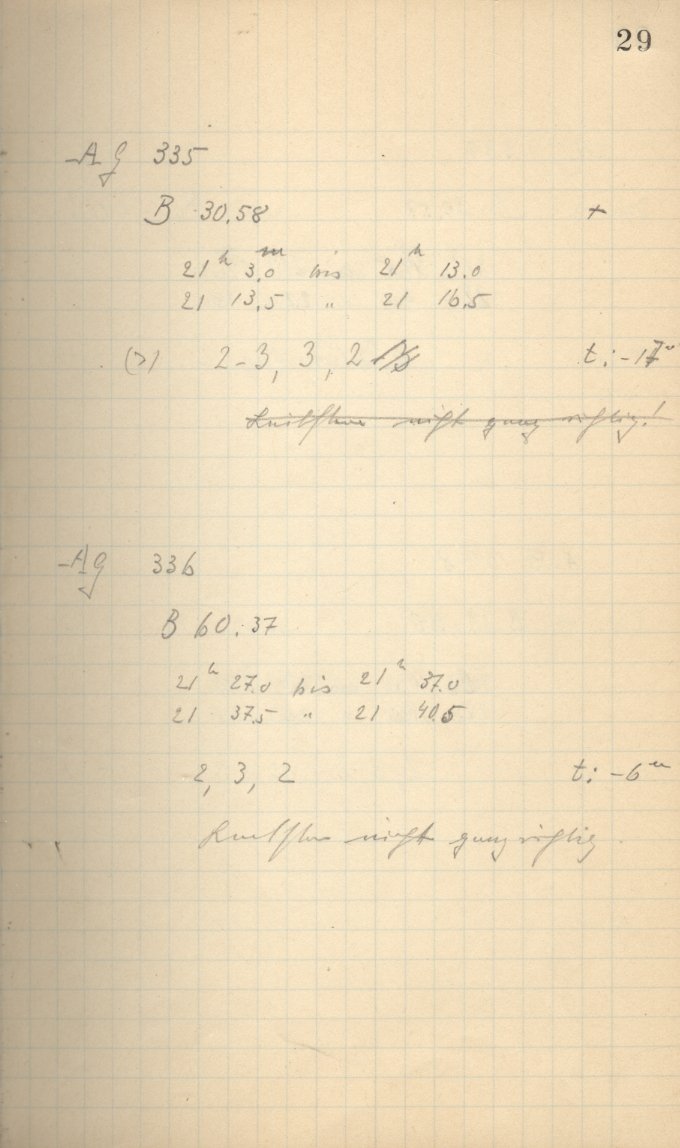 29
AG 335
B 30.58 +
21h 3.0m bis 21h 13.0
21 13.5 " 21 16.5
(>) 2-3, 3, 2 t: -17
nicht ganz richtig!
AG 336
B 60.37
21h 27.0 bis 21h 37.0
21 37.5 " 21 40.5
2, 3, 2 t: -6
nicht ganz richtig